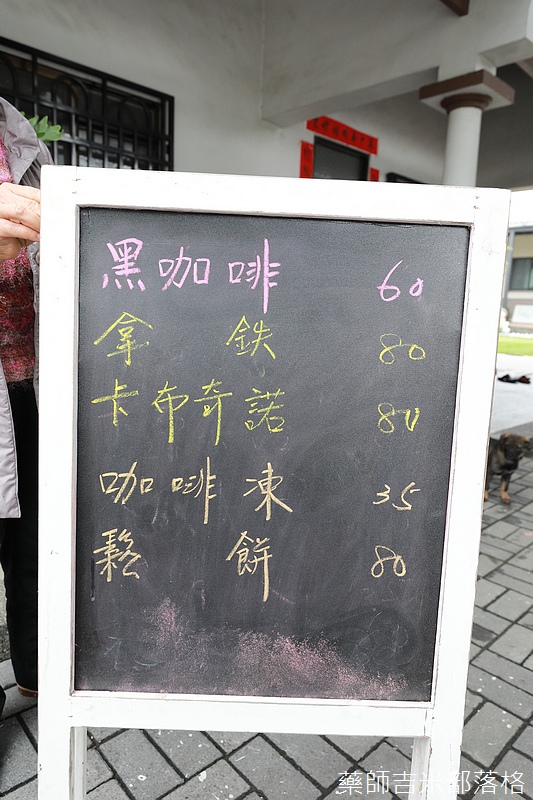 黑咖啡 60
拿鐵 80
卡布奇諾 80
咖啡凍 35
鬆餅 80
藥師吉米部落格